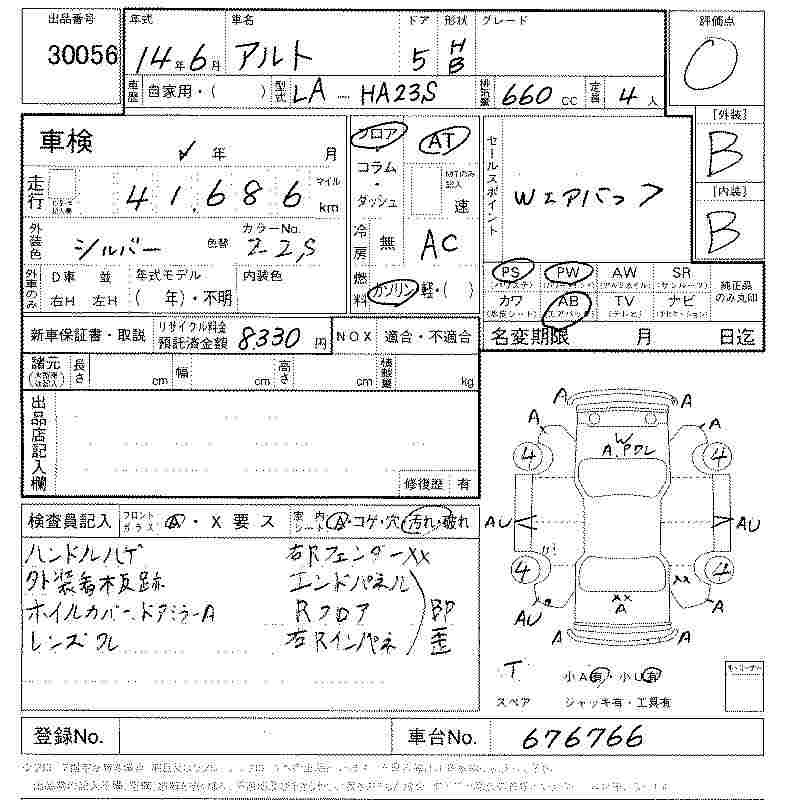 出品番号 年式 車名 ドア 形状 グレード 評価点
30056 14年6月 アルト 5 HB 0
車歴 自家用・( ) 型式 LA - HA23S 排気量 660 cc 定員 4 人
[外装]
B
[内装]
B
車検 年 月
フロア・コラム・ダッシュ AT MTのみ記入 速
セールスポイント Wエアバッグ
走行 41,686 マイル km
外装色 シルバー 色替 カラーNo. Z2S
冷房 無 AC
燃料 ガソリン・軽・( )
外車のみ D車 並 右H 左H 年式モデル ( 年)・不明 内装色
PS (パワステ) PW (パワーウインド) AW (アルミホイル) SR (サンルーフ) 純正品のみ丸印
カワ (本皮シート) AB (エアバッグ) TV (テレビ) ナビ (ナビゲーション)
新車保証書・取説 リサイクル料金預託済金額 8330 円 NOX 適合・不適合
名変期限 月 日迄
諸元 長さ cm 幅 cm 高さ cm 積載量 kg
出品店記入欄
修復歴 有
検査員記入 フロントガラス A・X要ス 室内シート A・コゲ・穴・汚れ・破れ
ハンドルハゲ 右Rフェンダーxx
外装看板跡 エンドパネル
ホイルカバー、ドアミラーA Rフロア
レンズワレ 右Rインパネ
A A
A A
W
A.Pワレ
4 4
AU AU
4 4
xx
xx
A
AU A
A A
T 小A有・小U有
スペア ジャッキ有・工具有
登録No. 車台No. 676766